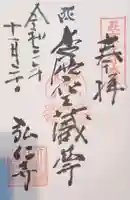 奉拝
虚空蔵尊
令和二年
十一月
弘仁寺